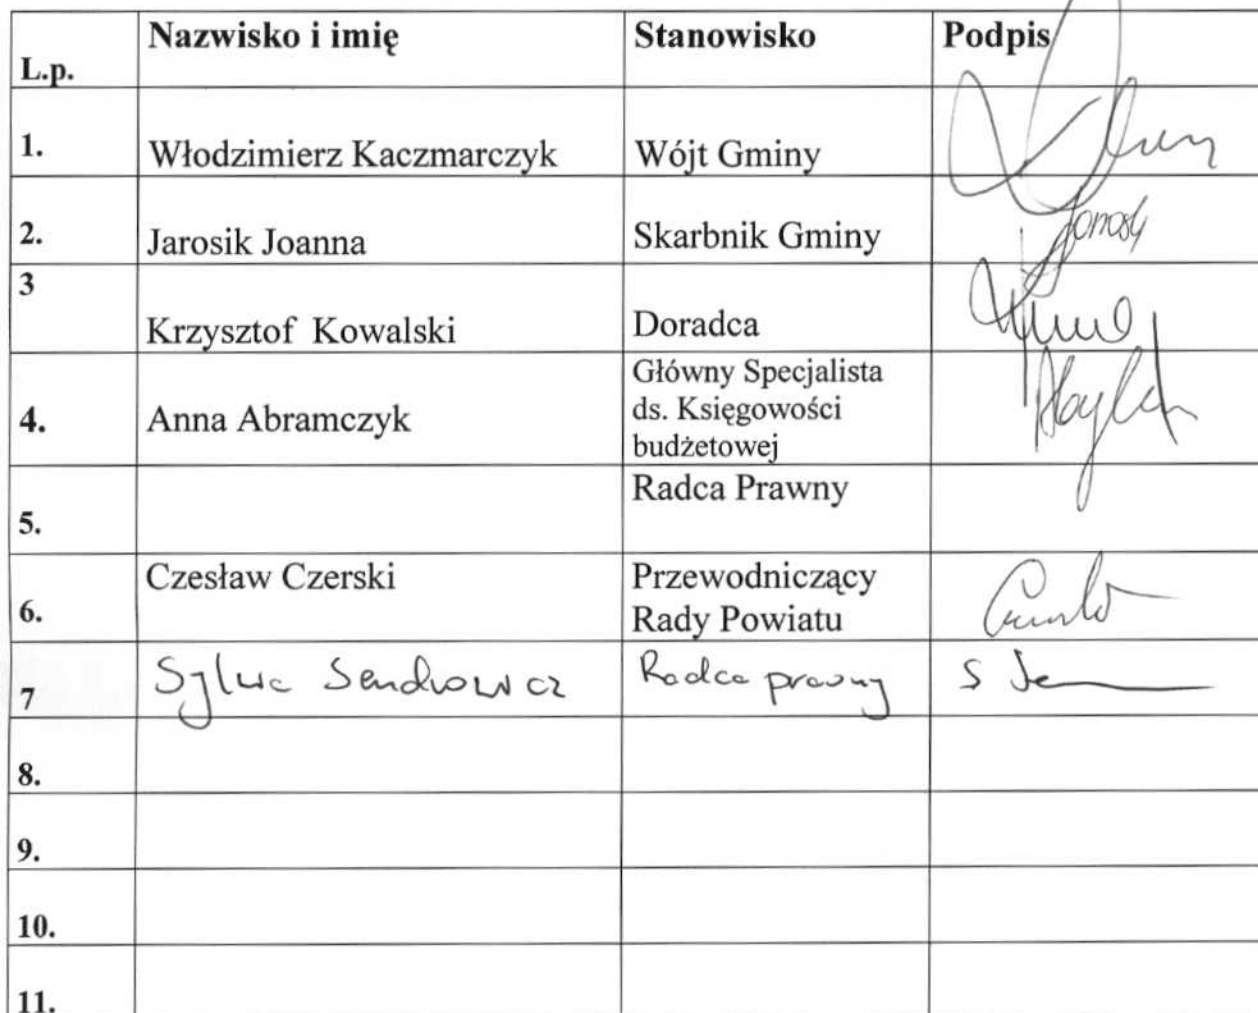 L.p. Nazwisko i imię Stanowisko Podpis
1. Włodzimierz Kaczmarczyk Wójt Gminy
2. Jarosik Joanna Skarbnik Gminy
3 Krzysztof Kowalski Doradca
4. Anna Abramczyk Główny Specjalista
ds. Księgowości
budżetowej
5. Radca Prawny
6. Czesław Czerski Przewodniczący
Rady Powiatu
7 Sylwia Sendrowicz Radca prawny S
8.
9.
10.
11.